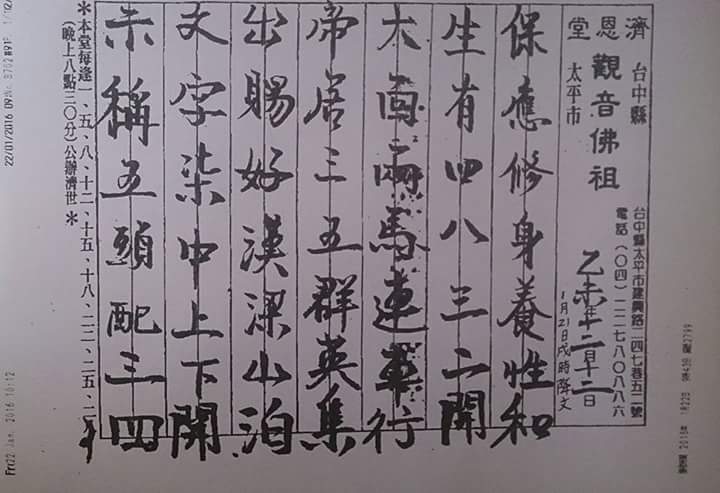 濟恩堂
台中縣
太平市
觀音佛祖
台中縣太平市建興路二四七巷五二號
電話(〇四)二二七八〇八八六
乙未年十二月十二日
1月21日戌時降文
保應修身養性和
生有四八三二開
馬連車行
帝居三五群英集
出賜好漢梁山泊
文字柒中上下開
稱五頭配三四
＊本堂每逢一、五、八、十二、十五、十八、二二、二五、
(晚上八點三〇分)公辦濟世＊
22/01/2016
Fri 22 Jan. 2016 10:12